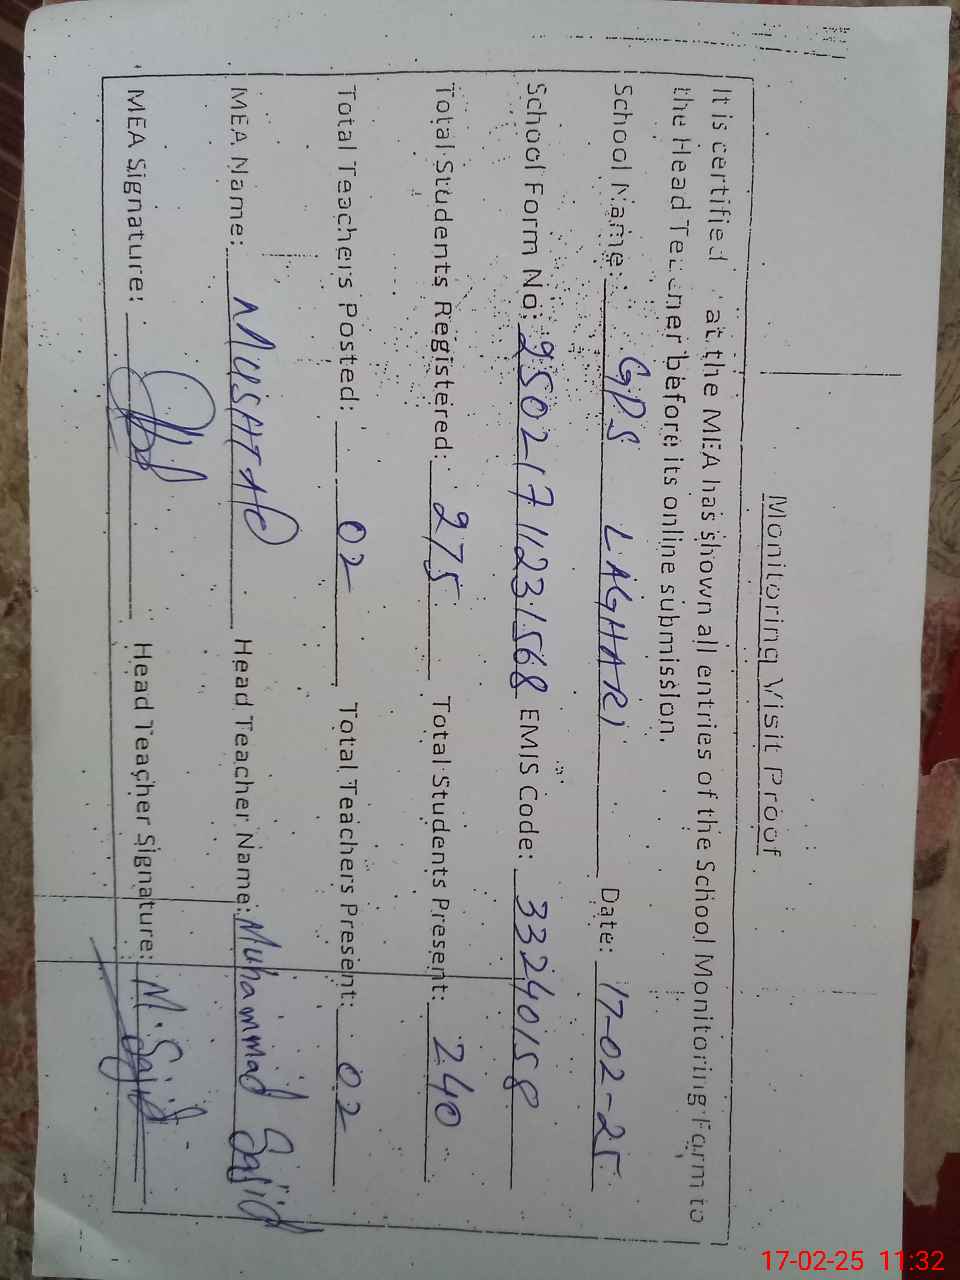 Monitoring Visit Proof
It is certified at the MEA has shown all entries of the School Monitoring Farm to
the Head Teacher before its online submission.
School Name: GPS LAGHARI Date: 17-02-25
School Form No: 250217 1123 1568 EMIS Code: 33240158
Total Students Registered: 275 Total Students Present: 240
Total Teachers Posted: 02 Total Teachers Present: 02
MEA Name: MUSHTAQ Head Teacher Name: Muhammad Sajid
MEA Signature: Head Teacher Signature: M. Sajid
17-02-25 11:32